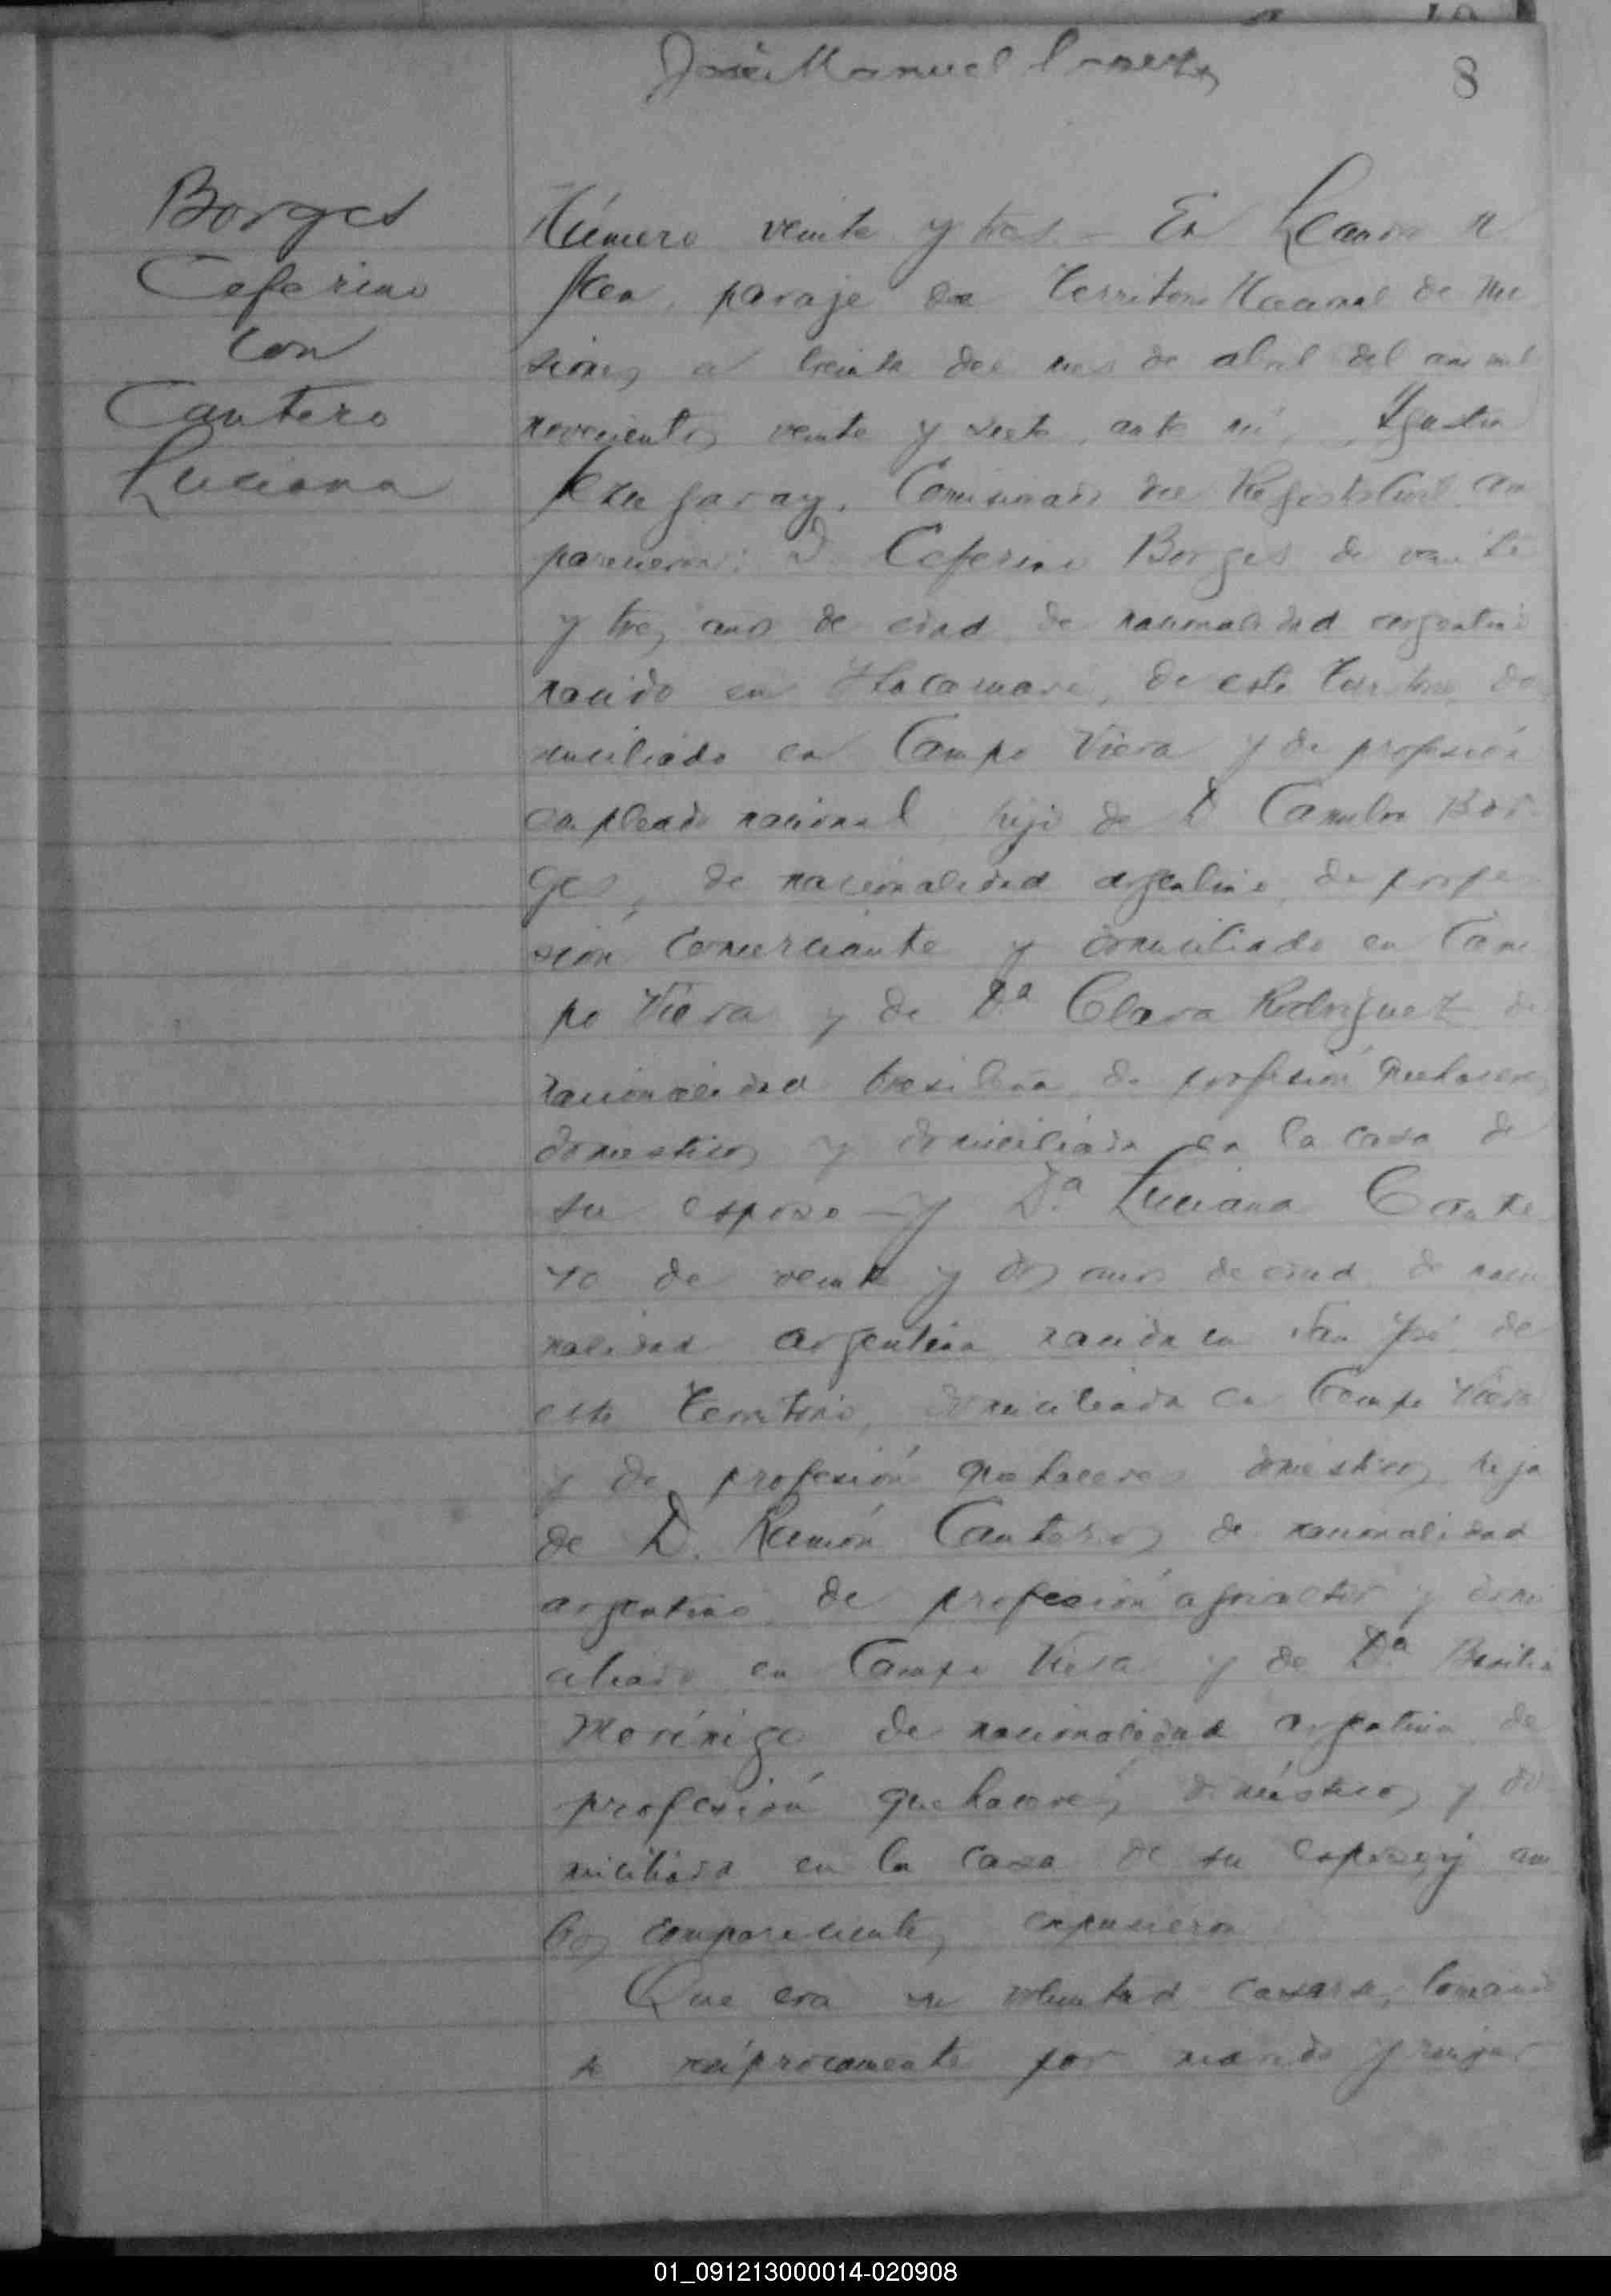 José Manuel
8
Borges
Ceferino
con
Cantero
Luciana
Número veinte y tres – En
paraje del Territorio Nacional de Mi
siones, a treinta del mes de abril del año mil
novecientos veinte y siete, ante mí,
Comisionado del Registro Civil com
parecieron: D. Ceferino Borges de veinte
y tres años de edad de nacionalidad argentino
nacido en Itacaruaré, de este Territorio, do
miciliado en Campo Viera y de profesión
empleado nacional hijo de D. Bor
ges, de nacionalidad argentino, de profe
sión comerciante y domiciliado en Cam
po Viera y de Da Clara Rodriguez de
nacionalidad brasileña de profesión quehaceres
domésticos y domiciliada en la casa de
su esposo – y Da. Luciana Cante
ro de veinte y dos años de edad de nacio
nalidad argentina nacida en San José de
este Territorio, domiciliada en Campo Viera
y de profesión quehaceres domésticos hija
de D. Ramón Cantero, de nacionalidad
argentino de profesión agricultor y domi
ciliado en Campo Viera y de Da Basilia
Morínigo de nacionalidad argentina de
profesión quehaceres domésticos y do
miciliada en la casa de su esposo, y am
bos comparecientes, expusieron
Que era su voluntad casarse, tomando
se recíprocamente por marido y mujer
01_091213000014-020908